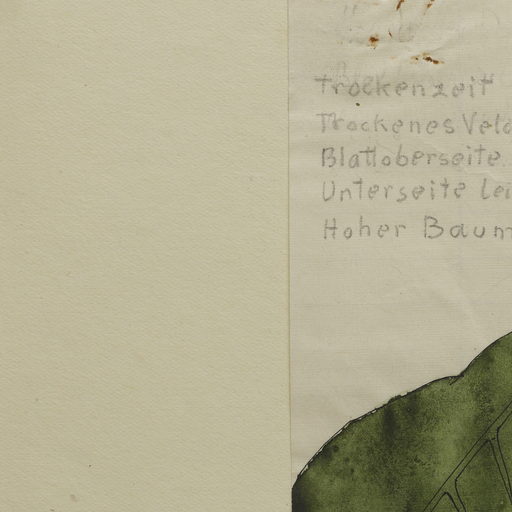 Trockenzeit
Trockenes Veld
Blattoberseite
Unterseite lei
Hoher Baum